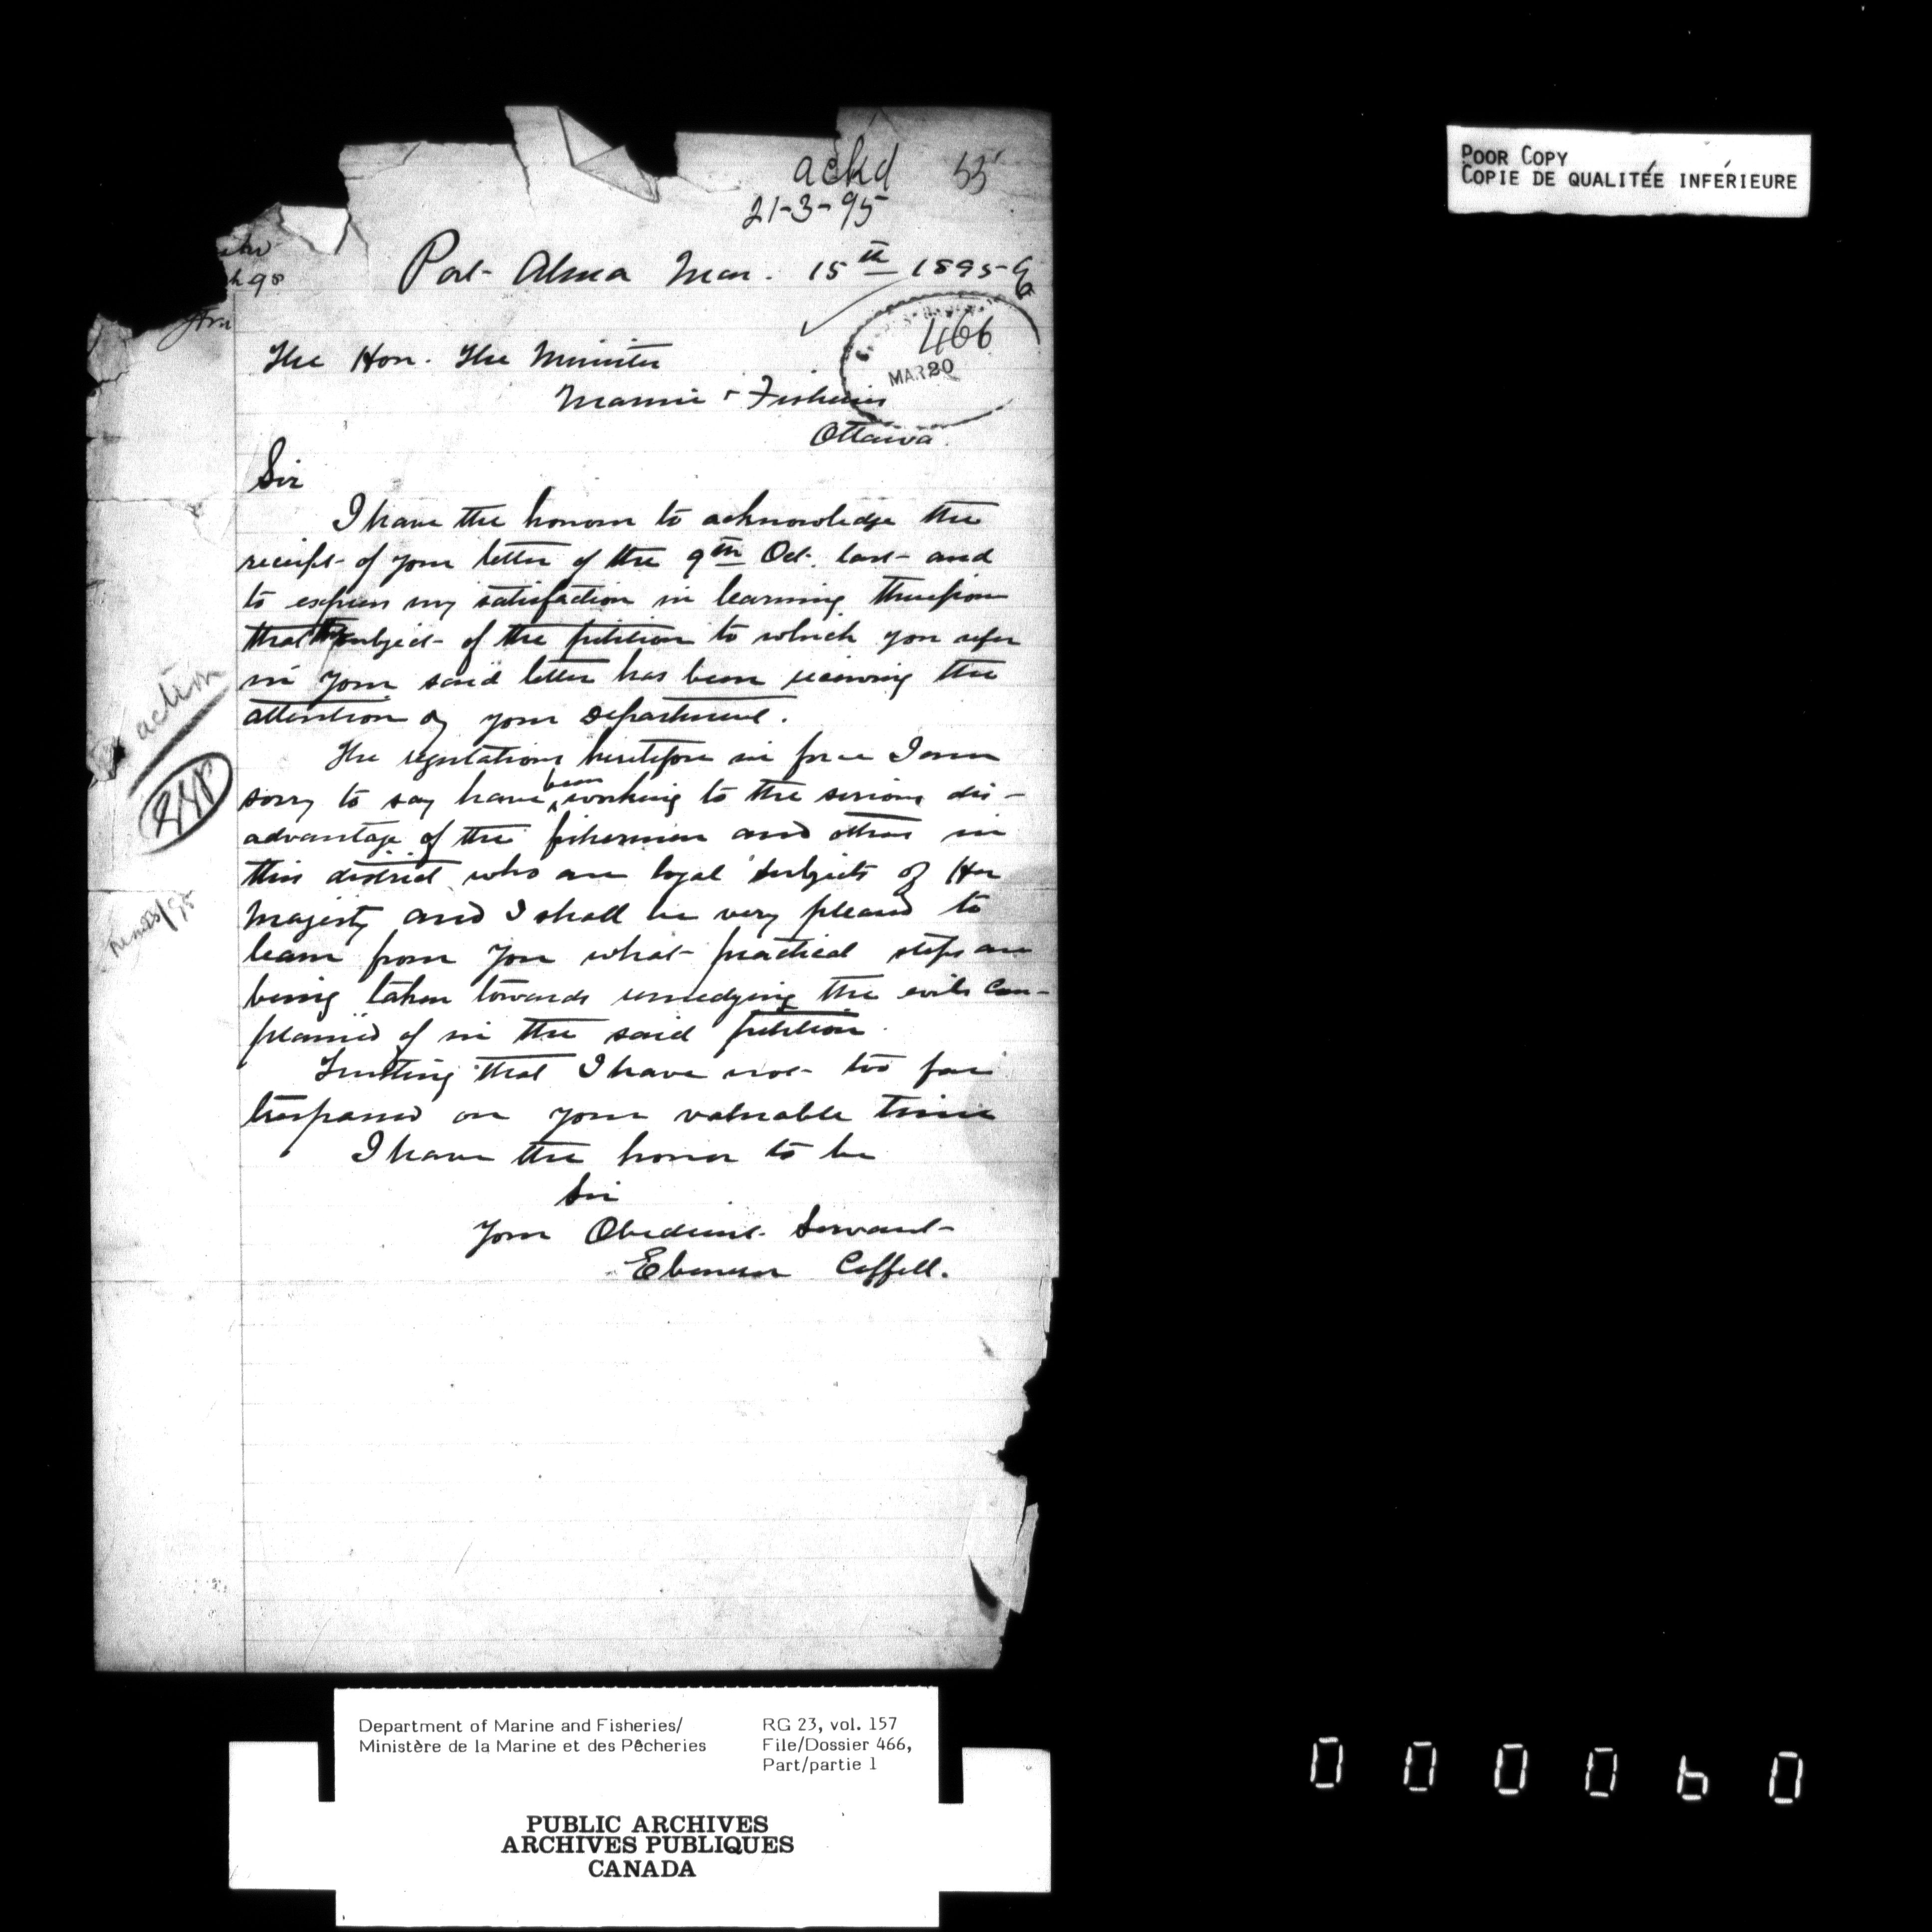 ackd 55
21-3-95
Port Alma Mar. 15th 1895
466
MAR 20
h 98
The Hon. The Minister
Marine & Fisheries
Ottawa.
Sir
I have the honour to acknowledge the
receipt of your letter of the 9th Oct. last and
to express my satisfaction in learning therefrom
that the subject of the petition to which you refer
in your said letter has been receiving the
attention of your Department.
The regulations heretofore in force I am
sorry to say have been working to the serious dis-
advantage of the fishermen and others in
this district who are loyal subjects of Her
Majesty and I shall be very pleased to
learn from you what practical steps are
being taken towards remedying the evils com-
plained of in the said petition.
Trusting that I have not too far
trespassed on your valuable time
I have the honor to be
Sir
Your Obedient Servant
Ebenezer Coffell.
action
POOR COPY
COPIE DE QUALITÉE INFÉRIEURE
Department of Marine and Fisheries/
Ministère de la Marine et des Pêcheries
RG 23, vol. 157
File/Dossier 466,
Part/partie 1
PUBLIC ARCHIVES
ARCHIVES PUBLIQUES
CANADA
000060